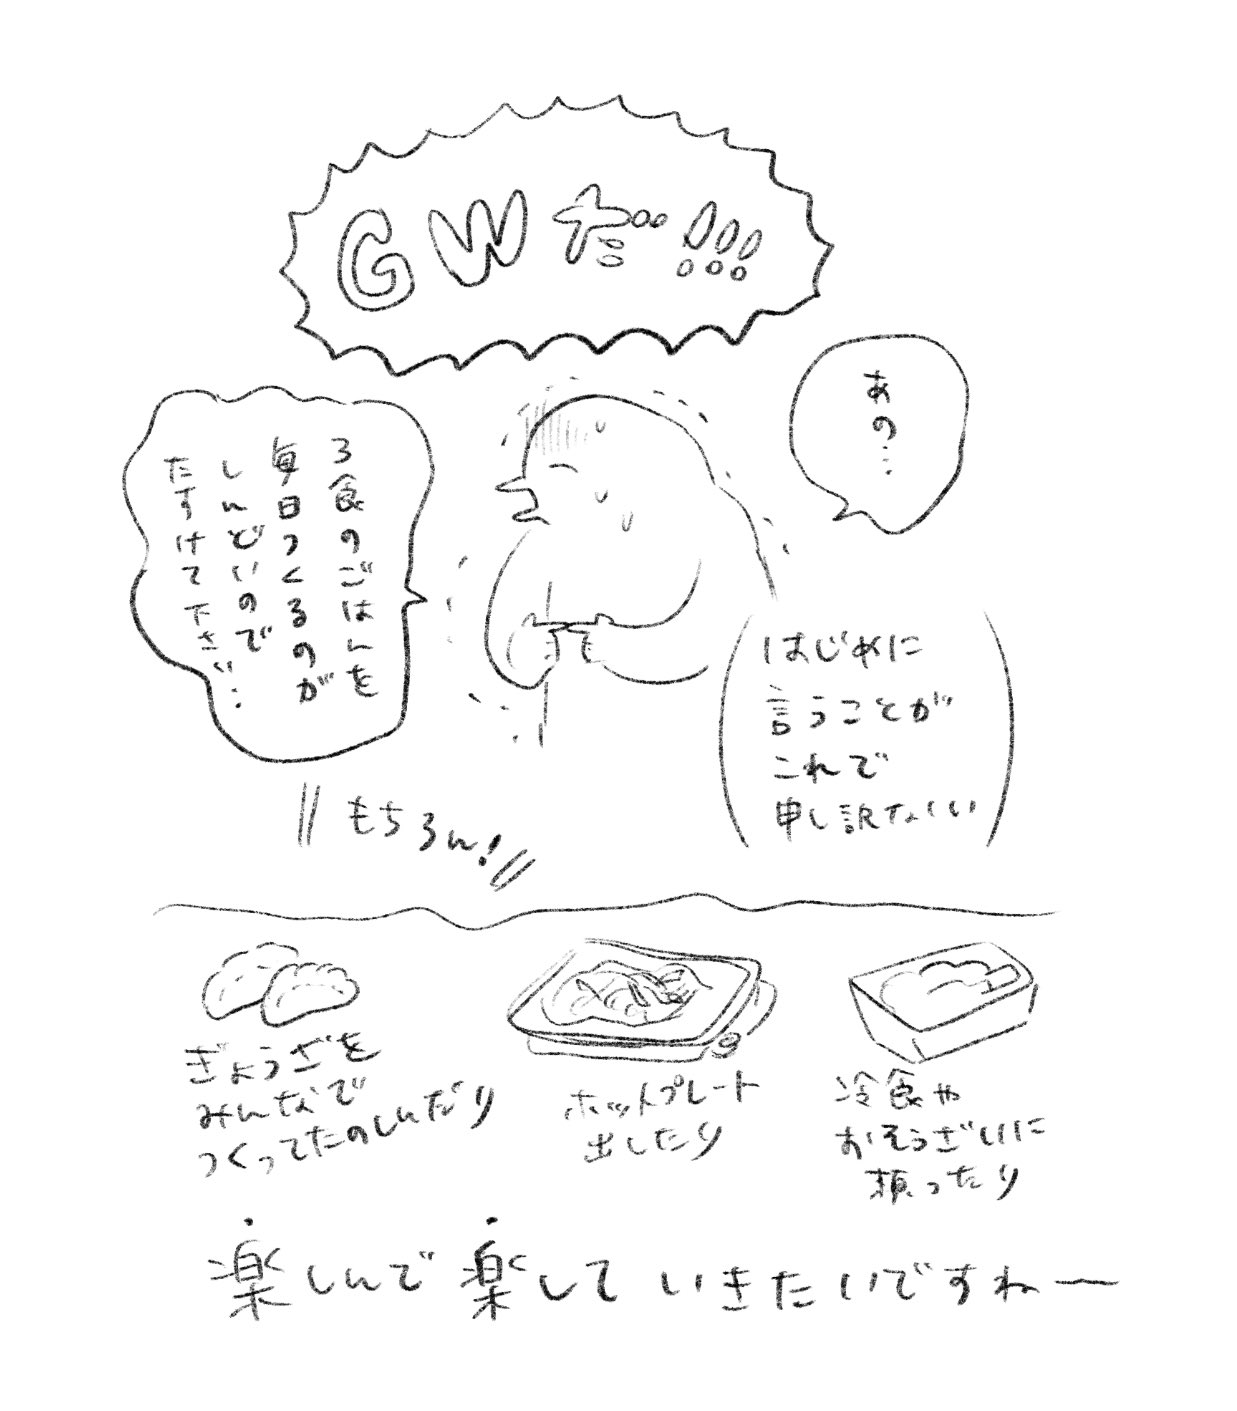 GWだ!!!
あの…
3食のごはんを
毎日つくるのが
しんどいので
たすけて下さい…
はじめに
言うことが
これで
申し訳ないい
もちろん!
ぎょうざを
みんなで
つくってたのしんだり
ホットプレート
出したり
冷食や
おそうざいに
頼ったり
楽しんで楽していきたいですねー